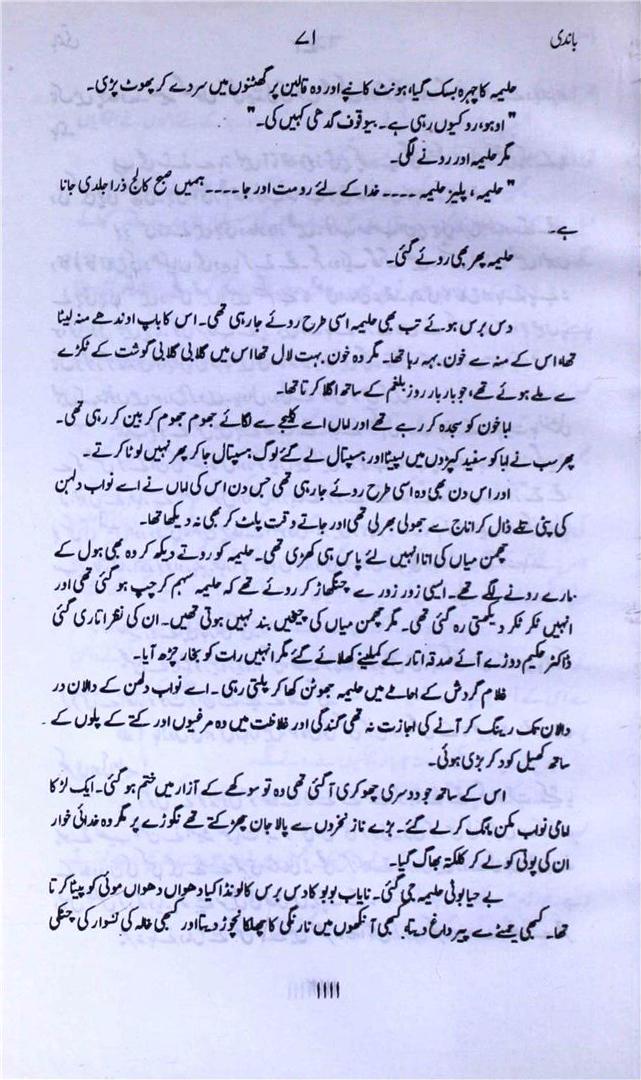 باندی
۷۱
حلیمہ کا چہرہ بسک گیا، ہونٹ کانپے اور وہ قالین پر گھٹنوں میں سر دے کر پھوٹ پڑی۔
"اوہو، رو کیوں رہی ہے۔ بیوقوف گدھی کہیں کی۔"
مگر حلیمہ اور رونے لگی۔
"حلیمہ، پلیز حلیمہ ۔۔۔۔ خدا کے لئے رو مت اور جا ۔۔۔۔ ہمیں صبح کالج ذرا جلدی جانا
ہے۔
حلیمہ پھر بھی روئے گئی۔
دس برس ہوئے تب بھی حلیمہ اسی طرح روئے جا رہی تھی۔ اس کا باپ اوندھے منہ لیٹا
تھا، اس کے منہ سے خون بہہ رہا تھا۔ مگر وہ خون بہت لال تھا اس میں گلابی گلابی گوشت کے ٹکڑے
سے ملے ہوئے تھے، جو بار بار روز بلغم کے ساتھ اگلا کرتا تھا۔
ابا خون کو سجدہ کر رہے تھے اور اماں اسے کلیجے سے لگائے جھوم جھوم کر بین کر رہی تھی۔
پھر سب نے ابا کو سفید کپڑوں میں لپیٹا اور ہسپتال لے گئے لوگ ہسپتال جا کر پھر نہیں لوٹا کرتے۔
اور اس دن بھی وہ اسی طرح روئے جا رہی تھی جس دن اس کی اماں نے اسے نواب دلہن
کی پٹی تلے ڈال کر اناج سے جھولی بھر لی تھی اور جاتے وقت پلٹ کر بھی نہ دیکھا تھا۔
چھمن میاں کی انا انہیں لئے پاس ہی کھڑی تھی۔ حلیمہ کو روتے دیکھ کر وہ بھی ہول کے
مارے رونے لگے تھے۔ ایسی زور زور سے چنگھاڑ کر روئے تھے کہ حلیمہ سہم کر چپ ہو گئی تھی اور
انہیں ٹکر ٹکر دیکھتی رہ گئی تھی۔ مگر چھمن میاں کی چیخیں بند نہیں ہوتی تھیں۔ ان کی نظر اتاری گئی
ڈاکٹر حکیم دوڑے آئے صدقہ اتار کے کلیلئے کھلائے گئے مگر انہیں رات کو بخار چڑھ آیا۔
غلام گردش کے احاطے میں حلیمہ جھوٹن کھا کر پلتی رہی۔ اسے نواب دلہن کے دالان در
دالان تک رینگ کر آنے کی اجازت نہ تھی گندگی اور غلاظت میں وہ مرغیوں اور کتے کے پلوں کے
ساتھ کھیل کود کر بڑی ہوئی۔
اس کے ساتھ جو دوسری چھوکری آگئی تھی وہ تو سوکھے کے آزار میں ختم ہو گئی۔ ایک لڑکا
امامی نواب ممکن مانگ کر لے گئے۔ بڑے ناز نخروں سے پالا جان چھڑکتے تھے نگوڑے پر مگر وہ خدائی خوار
ان کی پوٹی کو لے کر کلکتہ بھاگ گیا۔
بے حیا بوٹی حلیمہ جی گئی۔ نایاب بوبو کا دس برس کا لونڈا کیا دھواں دھواں موئی کو پیٹا کرتا
تھا۔ کبھی چمٹے سے پیر داغ دیتا، کبھی آنکھوں میں نارنگی کا چھلکا نچوڑ دیتا اور کبھی خالہ کی نسوار کی چٹکی